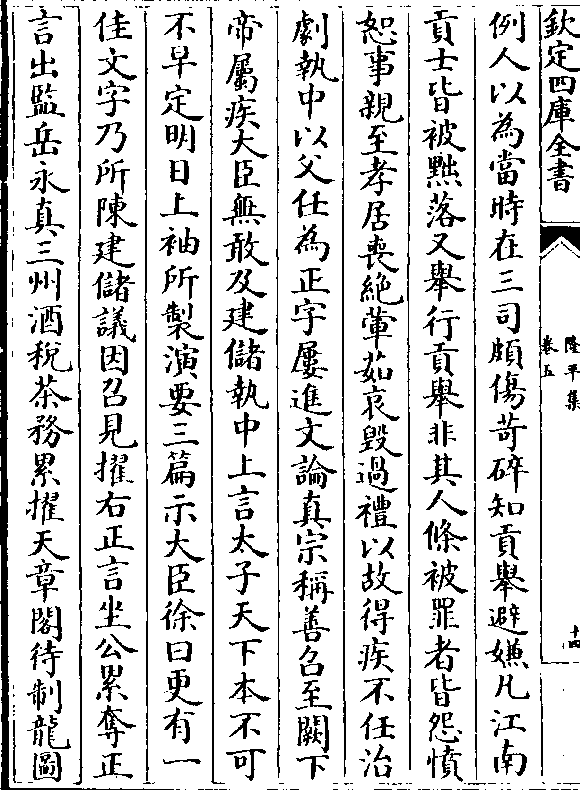 欽定四庫全書
隆平集
卷五
十四
例人以為當時在三司頗傷苛碎知貢舉避嫌凡江南
貢士皆被黜落又舉行貢舉非其人條被罪者皆怨憤
恕事親至孝居喪絶葷茹哀毀過禮以故得疾不任治
劇執中以父任為正字屢進文論真宗稱善召至闕下
帝屬疾大臣無敢及建儲執中上言太子天下本不可
不早定明日上袖所製演要三篇示大臣徐曰更有一
佳文字乃所陳建儲議因召見擢右正言坐公累奪正
言出監岳永真三州酒稅茶務累擢天章閣待制龍圖